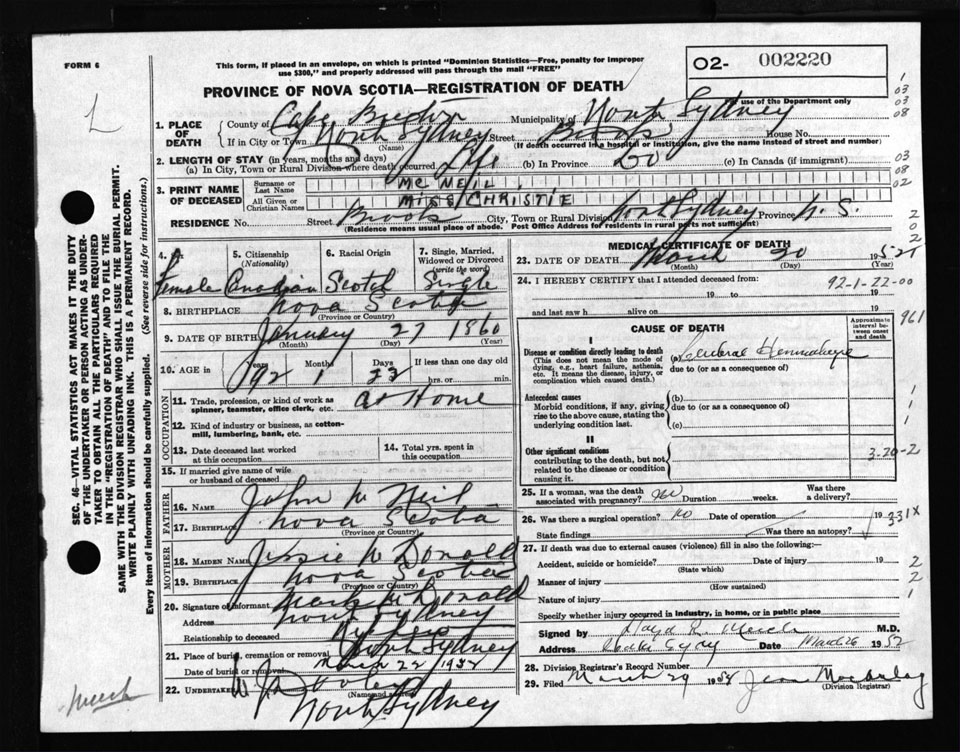 FORM 6
This form, if placed in an envelope, on which is printed "Dominion Statistics—Free, penalty for improper
use $300," and properly addressed will pass through the mail "FREE"
O2- 002220
For use of the Department only
PROVINCE OF NOVA SCOTIA—REGISTRATION OF DEATH
L
1. PLACE OF DEATH
County of Cape Breton Municipality of North Sydney
If in City or Town North Sydney Street Brook House No.
(Name) (If death occurred in a hospital or institution, give the name instead of street and number)
2. LENGTH OF STAY (in years, months and days)
(a) In City, Town or Rural Division where death occurred Life (b) In Province Do (c) In Canada (if immigrant)
3. PRINT NAME OF DECEASED
Surname or Last Name MC NEIL
All Given or Christian Names MISS CHRISTIE
RESIDENCE No. Street Brook City, Town or Rural Division North Sydney Province N. S.
(Residence means usual place of abode. Post Office Address for residents in rural parts not sufficient)
4. Female
5. Citizenship (Nationality) Canadian
6. Racial Origin Scotch
7. Single, Married, Widowed or Divorced (write the word) Single
8. BIRTHPLACE Nova Scotia
(Province or Country)
9. DATE OF BIRTH January 27 1860
(Month) (Day) (Year)
10. AGE in Years 92 Months 1 Days 23 If less than one day old hrs. or min.
OCCUPATION
11. Trade, profession, or kind of work as spinner, teamster, office clerk, etc. at Home
12. Kind of industry or business, as cotton-mill, lumbering, bank, etc.
13. Date deceased last worked at this occupation
14. Total yrs. spent in this occupation
15. If married give name of wife or husband of deceased
FATHER
16. Name John McNeil
17. Birthplace Nova Scotia
(Province or Country)
MOTHER
18. MAIDEN NAME Jessie McDonald
19. BIRTHPLACE Nova Scotia
(Province or Country)
20. Signature of informant McDonald
Address North Sydney
Relationship to deceased
21. Place of burial, cremation or removal North Sydney
Date of burial or removal March 22 1952
22. UNDERTAKER
(Name and address)
North Sydney
MEDICAL CERTIFICATE OF DEATH
23. DATE OF DEATH March 20 1952
(Month) (Day) (Year)
24. I HEREBY CERTIFY that I attended deceased from: 92-1-22-00
19 to 19
and last saw h alive on 19
961
CAUSE OF DEATH
Approximate interval between onset and death
I
Disease or condition directly leading to death (a) Cerebral Hemorrhage
(This does not mean the mode of dying, e.g., heart failure, asthenia, etc. It means the disease, injury, or complication which caused death.)
due to (or as a consequence of)
Antecedent causes
Morbid conditions, if any, giving rise to the above cause, stating the underlying condition last.
(b)
due to (or as a consequence of)
(c)
II
Other significant conditions
contributing to the death, but not related to the disease or condition causing it.
3-20-2
25. If a woman, was the death associated with pregnancy? no Duration weeks. Was there a delivery?
26. Was there a surgical operation? no Date of operation 19 331X
State findings Was there an autopsy?
27. If death was due to external causes (violence) fill in also the following:—
Accident, suicide or homicide? Date of injury 19
(State which)
Manner of injury
(How sustained)
Nature of injury
Specify whether injury occurred in industry, in home, or in public place
Signed by M.D.
Address Date March 26 1952
28. Division Registrar's Record Number
29. Filed March 29 195
(Division Registrar)
SEC. 46—VITAL STATISTICS ACT MAKES IT THE DUTY
OF THE UNDERTAKER OR PERSON ACTING AS UNDER-
TAKER TO OBTAIN ALL THE PARTICULARS REQUIRED
IN THE "REGISTRATION OF DEATH" AND TO FILE THE
SAME WITH THE DIVISION REGISTRAR WHO SHALL ISSUE THE BURIAL PERMIT.
WRITE PLAINLY WITH UNFADING INK. THIS IS A PERMANENT RECORD.
Every item of information should be carefully supplied. (See reverse side for instructions.)